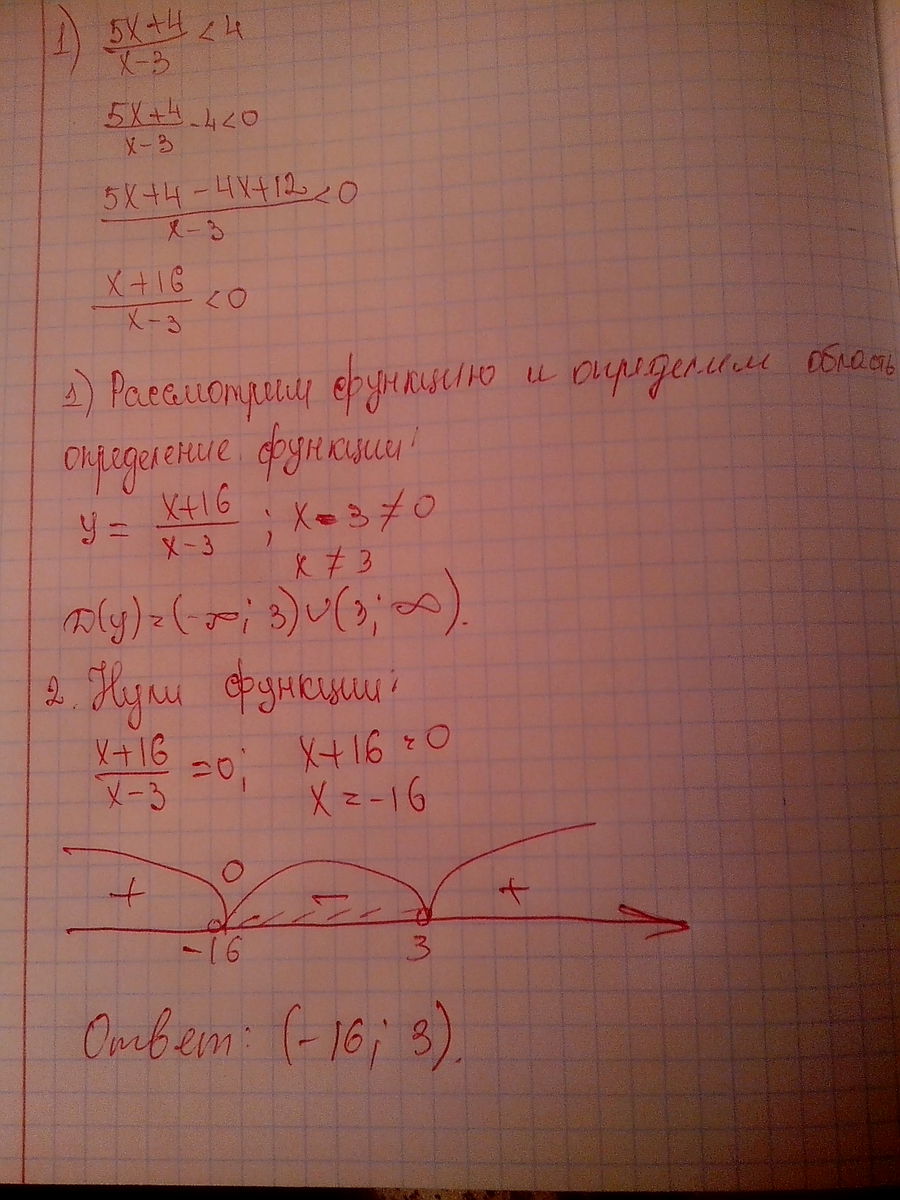 1) (5x+4)/(x-3) < 4
(5x+4)/(x-3) - 4 < 0
(5x+4-4x+12)/(x-3) < 0
(x+16)/(x-3) < 0
1) Рассмотрим функцию и определим область
определение функции:
y = (x+16)/(x-3) ; x-3 ≠ 0
x ≠ 3
D(y) = (-∞; 3)∪(3; ∞).
2. Нули функции:
(x+16)/(x-3) = 0; x+16 = 0
x = -16
+ 0 - +
-16 3
Ответ: (-16; 3).